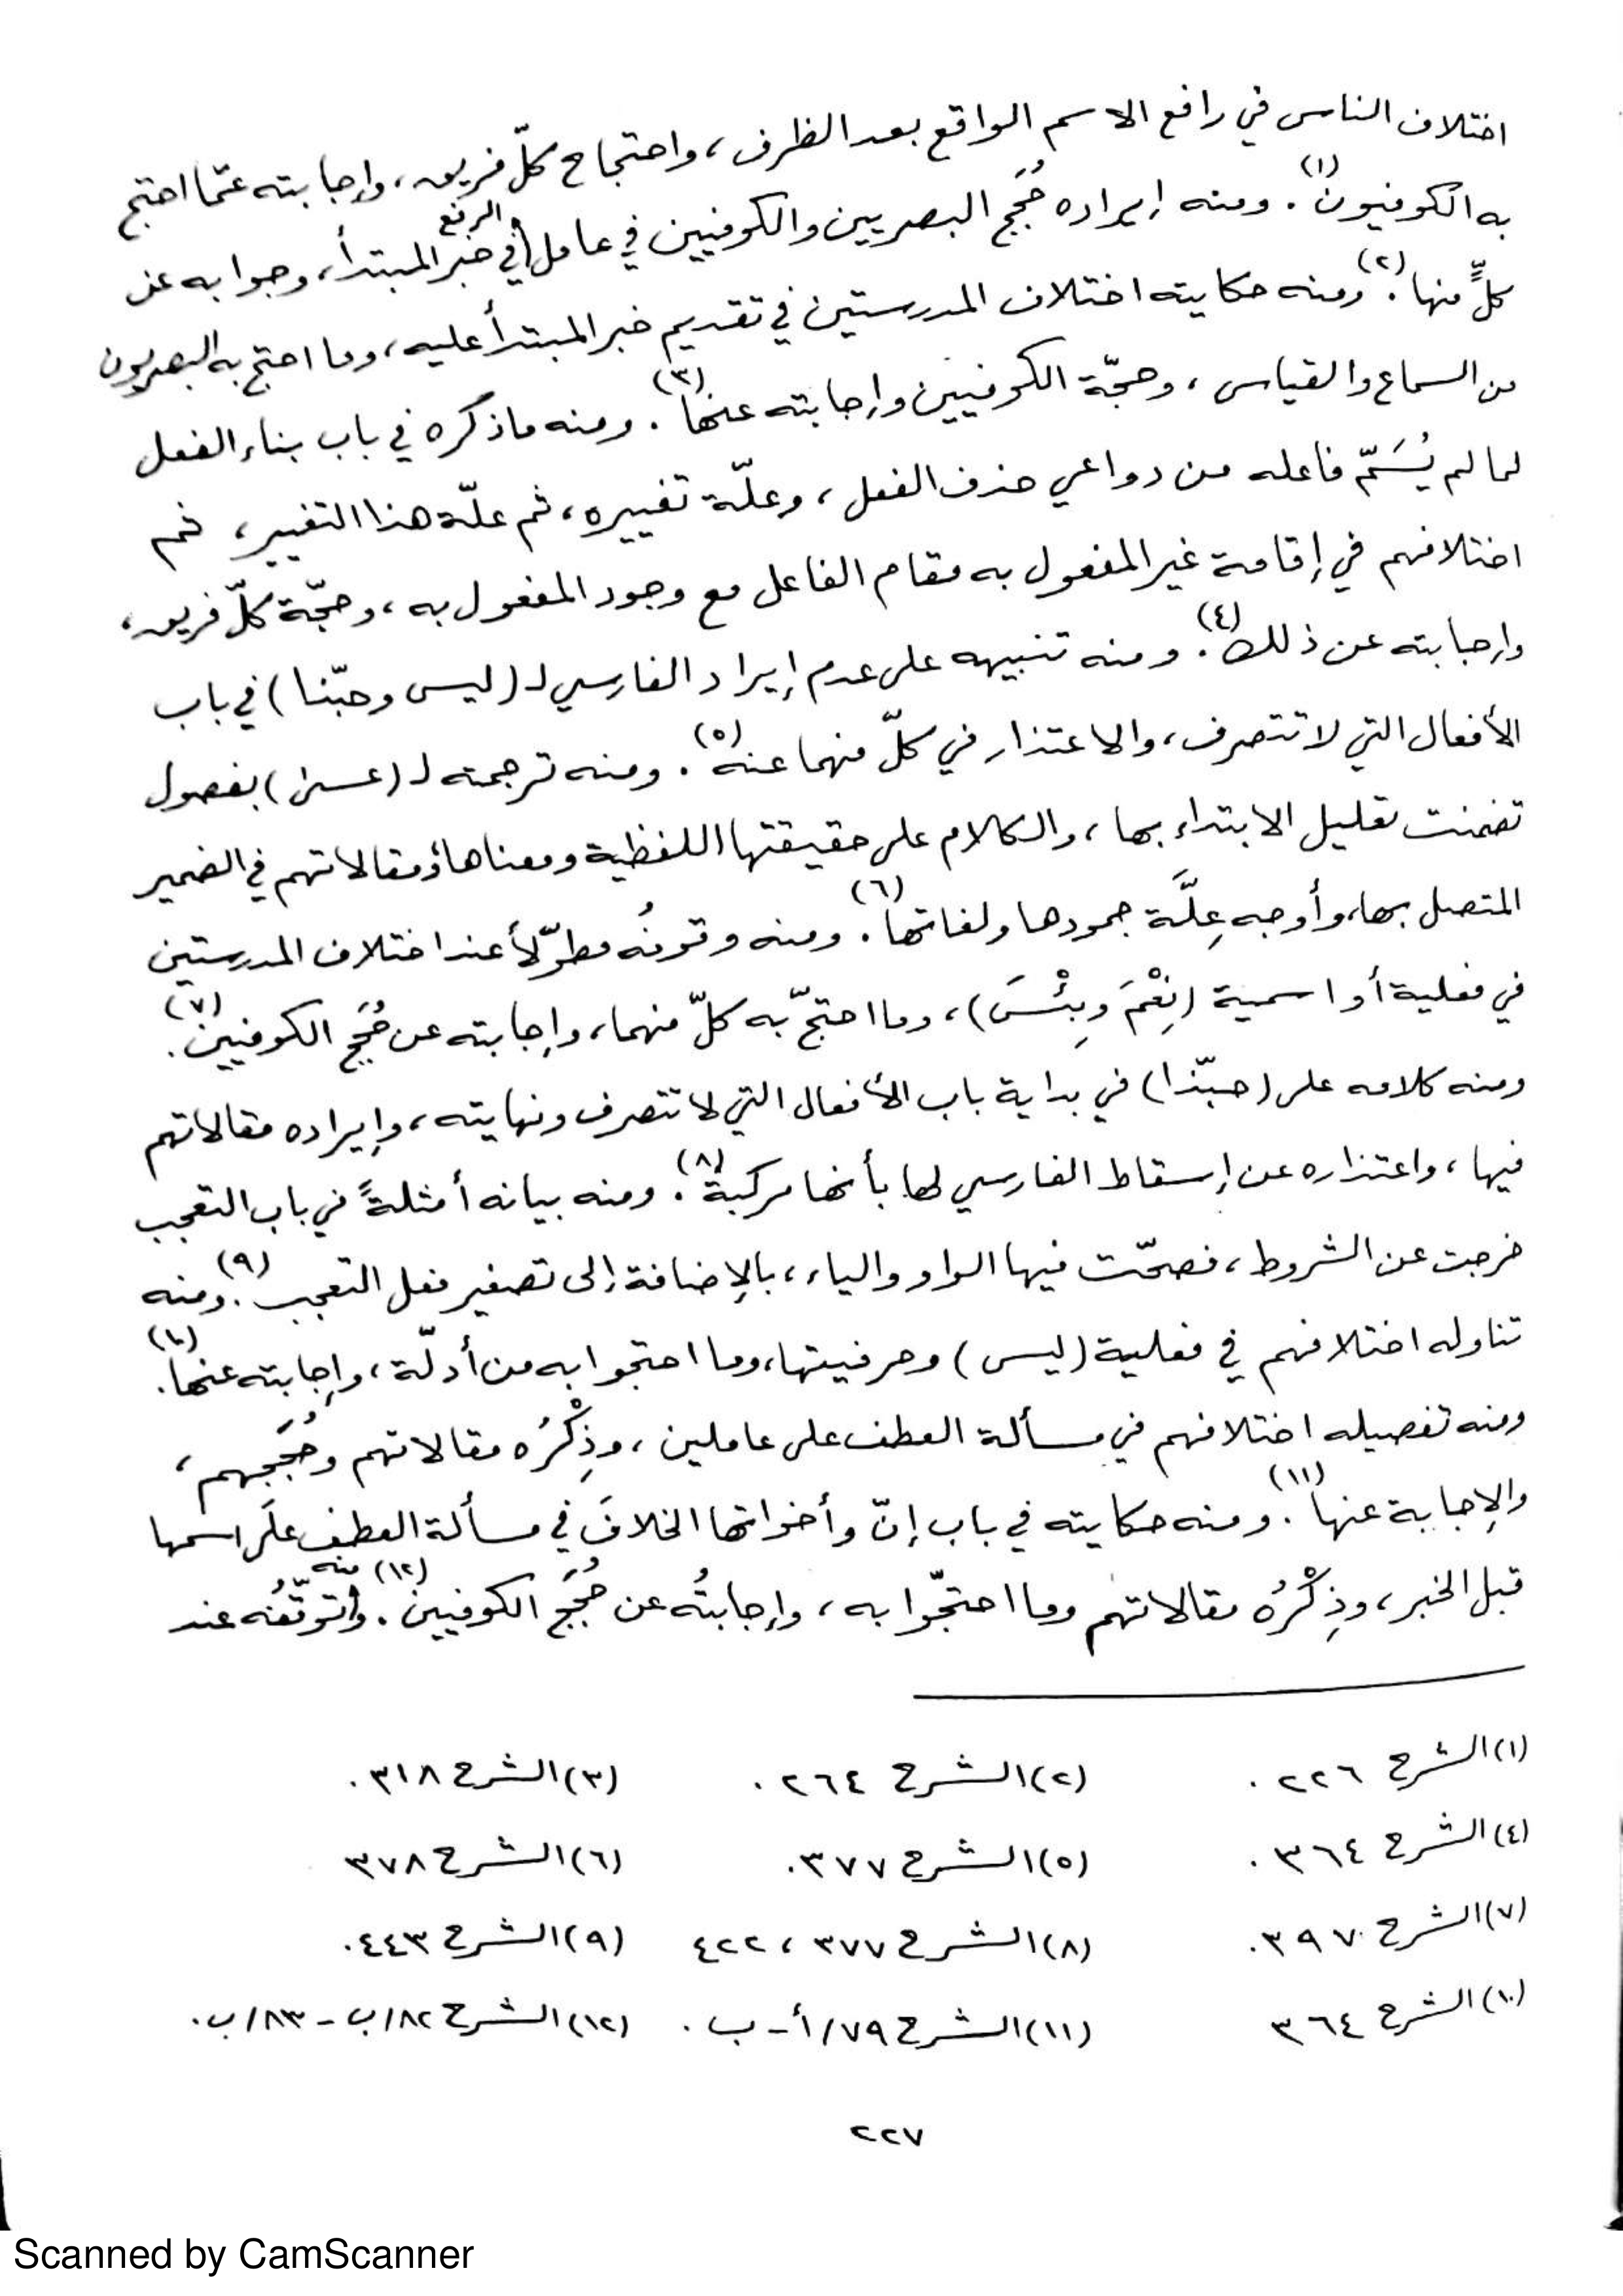 اختلاف الناس في رافع الاسم الواقع بعد الظرف، واحتجاج كلّ فريق، وإجابته عمّا احتج
به الكوفيون(١). ومنه إيراده حُجَج البصريين والكوفيين في عامل الرفع في خبر المبتدأ، وجوابه عن
كلٍّ منها(٢). ومنه حكايته اختلاف المدرستين في تقديم خبر المبتدأ عليه، وما احتج به البصريون
من السماع والقياس، وحجّة الكوفيين وإجابته عنها(٣). ومنه ما ذكره في باب بناء الفعل
لما لم يُسَمّ فاعله من دواعي حذف الفعل، وعلّة تغييره، ثم علّة هذا التغيير، ثم
اختلافهم في إقامة غير المفعول به مقام الفاعل مع وجود المفعول به، وحجّة كلّ فريق،
وإجابته عن ذلك(٤). ومنه تنبيهه على عدم إيراد الفارسي لـ (ليس وحبّذا) في باب
الأفعال التي لا تتصرف، والاعتذار في كلّ منهما عنه(٥). ومنه ترجمته لـ (عسى) بفصول
تضمنت تعليل الابتداء بها، والكلام على حقيقتها اللفظية ومعناها ومقالاتهم في الضمير
المتصل بها، وأوجه عِلَّة جمودها ولغاتها(٦). ومنه وقوفُه مطوّلاً عند اختلاف المدرستين
في فعلية أو اسمية (نِعْمَ وبِئْسَ)، وما احتجّ به كلّ منهما، وإجابته عن حُجَج الكوفيين(٧).
ومنه كلامه على (حبّذا) في بداية باب الأفعال التي لا تتصرف ونهايته، وإيراده مقالاتهم
فيها، واعتذاره عن إسقاط الفارسي لها بأنها مركبة(٨). ومنه بيانه أمثلةً في باب التعجب
خرجت عن الشروط، فصحّت فيها الواو والياء، بالإضافة إلى تصغير فعل التعجب(٩). ومنه
تناوله اختلافهم في فعلية (ليس) وحرفيتها، وما احتجوا به من أدلّة، وإجابته عنها(١٠).
ومنه تفصيله اختلافهم في مسألة العطف على عاملين، وذِكْرُه مقالاتهم وحُجَجهم،
والإجابة عنها(١١). ومنه حكايته في باب إنّ وأخواتها الخلافَ في مسألة العطف على اسمها
قبل الخبر، وذِكْرُه مقالاتهم وما احتجّوا به، وإجابتُه عن حُجَج الكوفيين(١٢). ومنه توقّفُه عند
(١) الشرح ٢٢٦.
(٢) الشرح ٢٦٤.
(٣) الشرح ٣١٨.
(٤) الشرح ٣٦٤.
(٥) الشرح ٣٧٧.
(٦) الشرح ٣٧٨
(٧) الشرح ٣٩٧.
(٨) الشرح ٣٧٧، ٤٢٢
(٩) الشرح ٤٤٣.
(١٠) الشرح ٣٦٤
(١١) الشرح ٧٩/أ-ب.
(١٢) الشرح ٨٢/ب - ٨٣/ب.
٢٢٧
Scanned by CamScanner